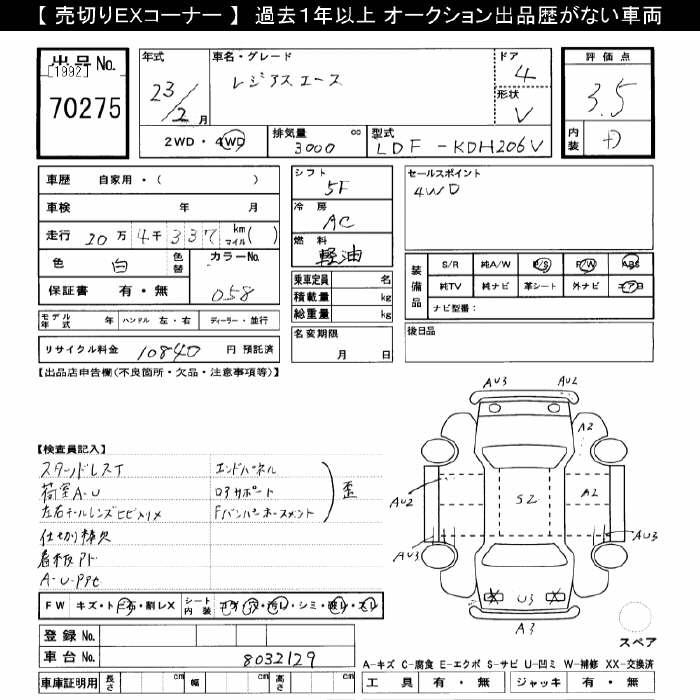 【 売切りEXコーナー 】 過去1年以上 オークション出品歴がない車両
出品 No.
[1992]
70275
年式
23/2 月
車名・グレード
レジアスエース
ドア
4
形状
V
評価点
3.5
内装
D
2WD・4WD
排気量 cc
3000
型式
LDF-KDH206V
車歴 自家用・( )
車検 年 月
走行 20万 4千 337 km マイル( )
色 白 色替
カラーNo.
058
保証書 有・無
モデル年式 年 ハンドル 左・右 ディーラー・並行
リサイクル料金 10840 円 預託済
シフト
5F
冷房
AC
燃料
軽油
乗車定員 名
積載量 kg
総重量 kg
名変期限
月 日
セールスポイント
4WD
装備品
S/R 純A/W P/S P/W ABS
純TV 純ナビ 革シート 外ナビ エアB
ナビ型番:
後日品
【出品店申告欄(不良箇所・欠品・注意事項等)】
【検査員記入】
荷室A・U
左右テールレンズヒビ
仕切棒欠
看板アト
エンドパネル
コアサポート
Fバンパーホースメント
歪
FW キズ・トビ石・割レX
シート内装 コゲ・穴・汚レ・シミ・破レ・スレ
登録 No.
車台 No. 8032129
車庫証明用 長さ cm 幅 cm 高さ cm
AU3
AU2
A2
AU2
S2
A2
AU3
AU3
U3
A3
スペア
A-キズ C-腐食 E-エクボ S-サビ U-凹ミ W-補修 XX-交換済
工具 有・無 ジャッキ 有・無